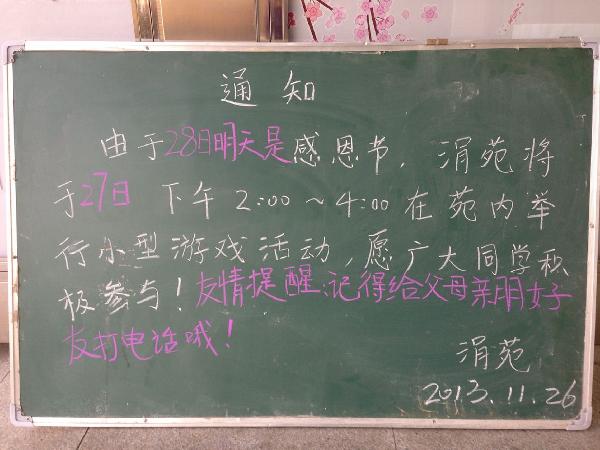 通知
由于28日明天是感恩节，涓苑将
于27日 下午2:00～4:00在苑内举
行小型游戏活动，愿广大同学积
极参与！友情提醒：记得给父母亲朋好
友打电话哦！
涓苑
2013.11.26